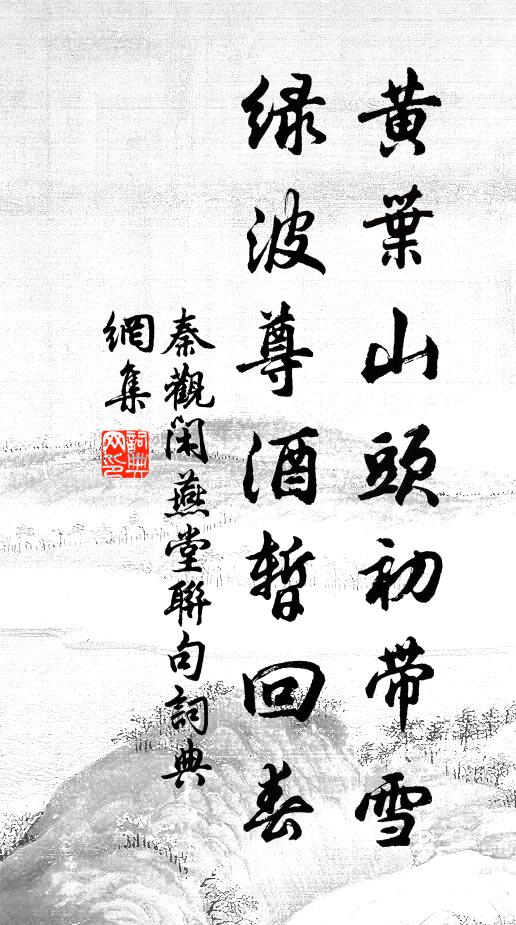 黃葉山頭初帶雪
綠波尊酒暫回春
秦觀閑燕堂聯句詞典
網集
詞典
网印